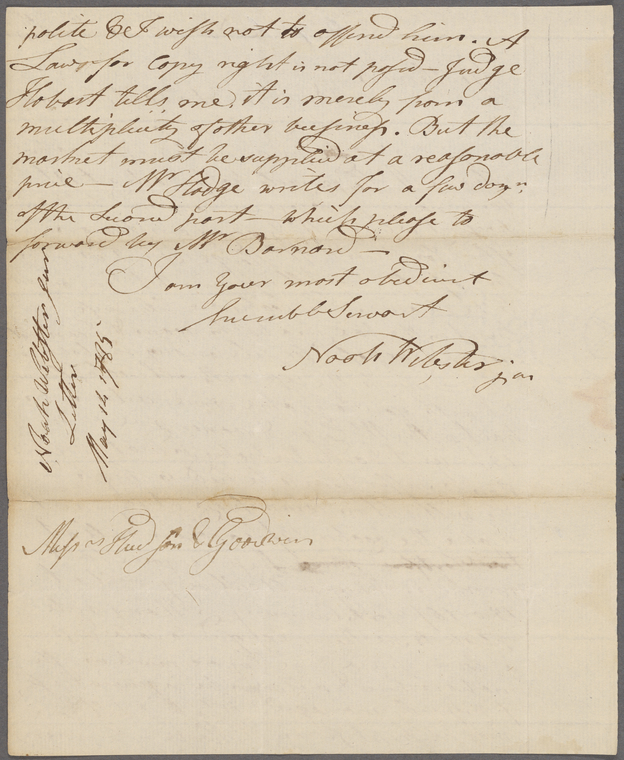 polite & I wish not to offend him. A
Law for Copy right is not passed – Judge
Hobart tells me, it is merely from a
multiplicity of other business. But the
market must be supplied at a reasonable
price – Mr Hodge writes for a few dozn
of the second part – which please to
forward by Mr Barnard –
I am your most obedient
humble Servant
Noah Webster jun
Noah Webster jun
Letter
May 14 1785
Messrs Hudson & Goodwin